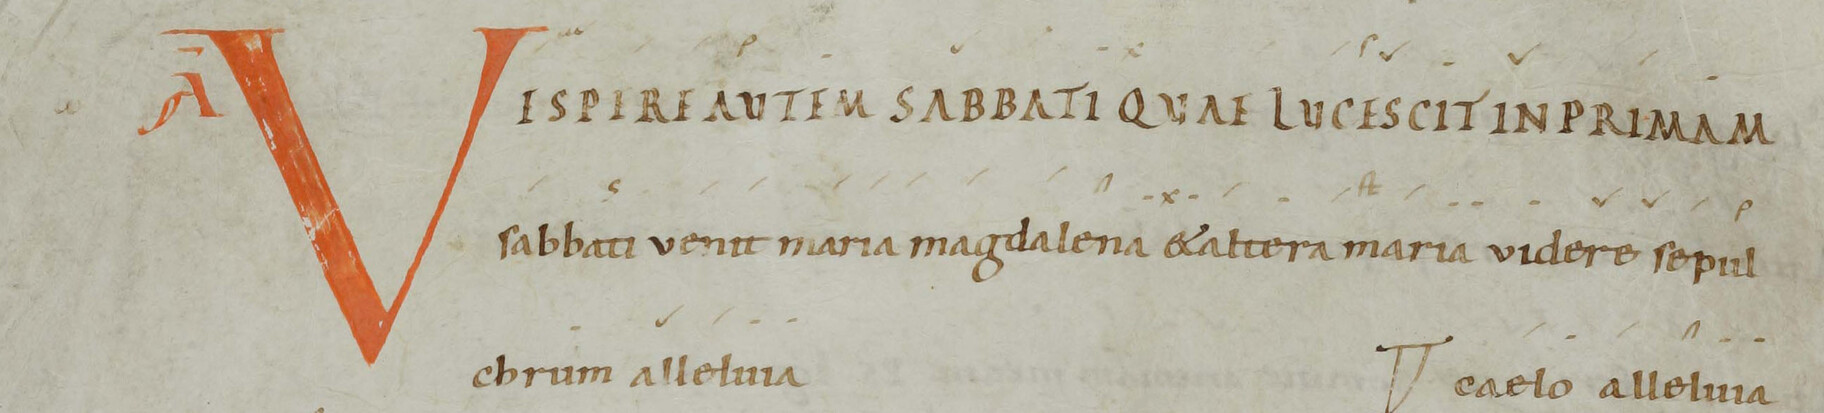 Ā VISPIRE AUTEM SABBATI QUAE LUCESCIT IN PRIMAM
sabbati venit maria magdalena & altera maria videre sepul
chrum alleluia caelo alleluia